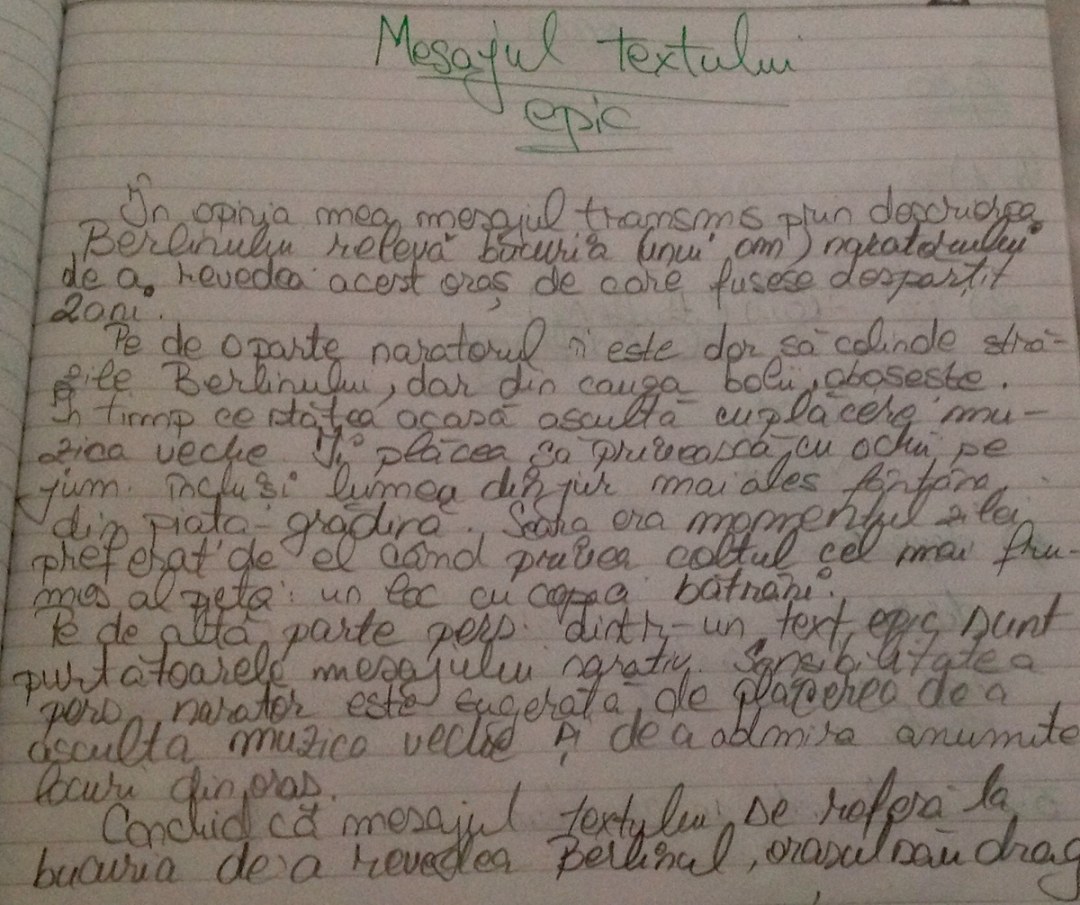 Mesajul textului
epic
În opinia mea, mesajul transms prin descrierea
Berlinului relevă bucuria (unui om) naratorului
de a revedea acest oraș de care fusese despărțit
2 ani.
Pe de o parte naratorul îi este dor să colinde stră-
zile Berlinului, dar din cauza bolii, obosește.
În timp ce stătea acasă ascultă cu plăcere mu-
zica veche. Îi plăcea să privească cu ochii pe
jum. inclusi lumea din jur mai ales fântâna
din piata-grădină. Seara era momentul zilei
preferat de el când privea coltul cel mai fru-
mos al pieței: un loc cu copaci bătrâni.
Pe de altă parte pers. dintr-un text epic sunt
purtătoarele mesajului narativ. Sensibilitatea
pers. narator este sugerată de plăcerea de a
asculta muzica veche și de a admira anumite
locuri din oraș.
Conchid că mesajul textului se referă la
bucuria de a revedea Berlinul, orașul său drag